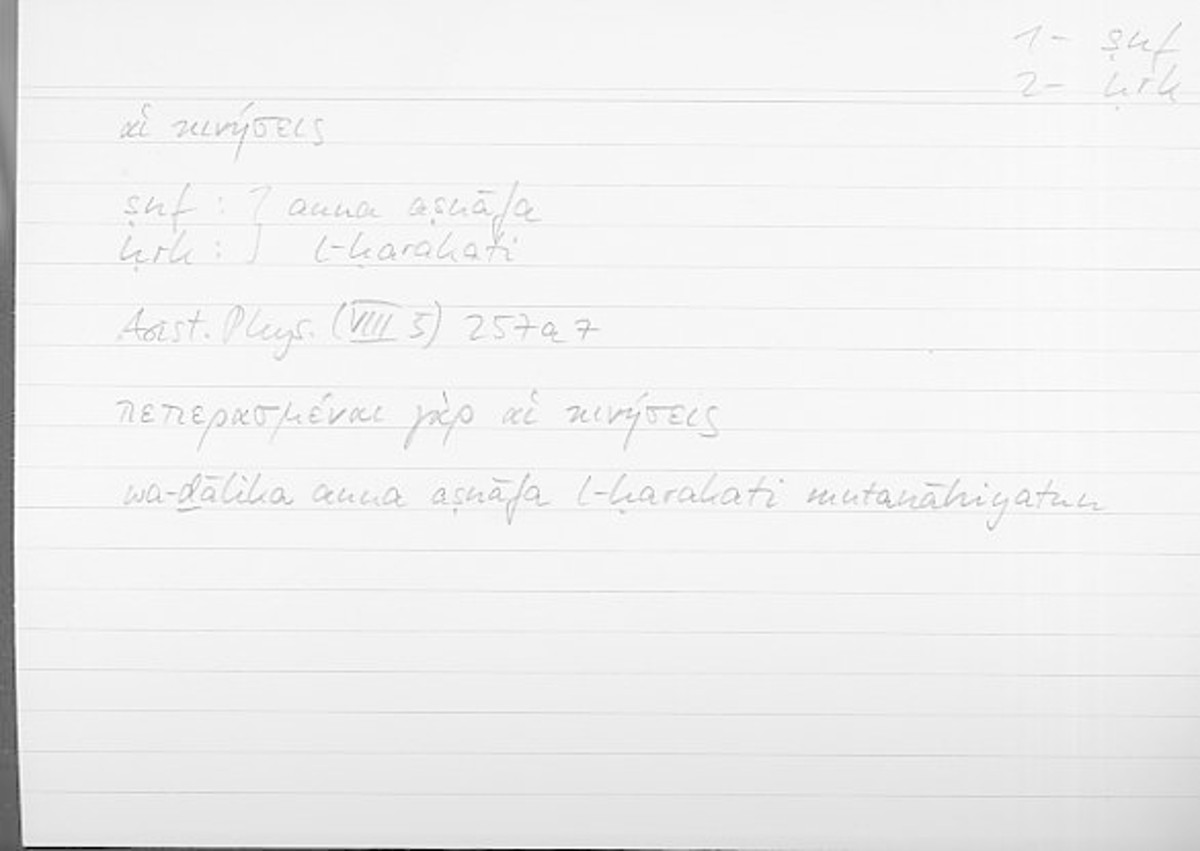 1- ṣnf
2- ḥrk
αἱ κινήσεις
ṣnf : } anna aṣnāfa
ḥrk : } l-ḥarakati
Arist. Phys. (VIII 5) 257a7
πεπερασμέναι γὰρ αἱ κινήσεις
wa-ḏālika anna aṣnāfa l-ḥarakati mutanāhiyatun